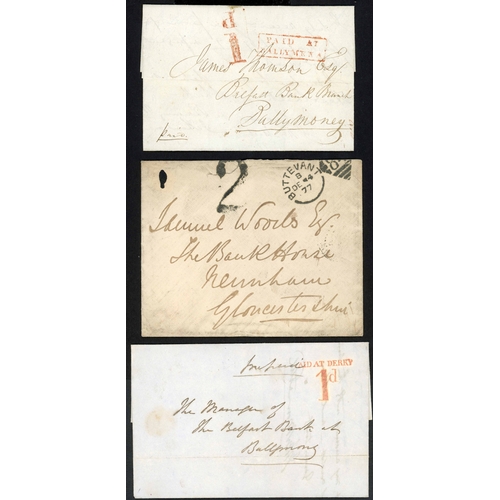 1d
PAID AT
BALLYMENA
James Thomson Esq
Belfast Bank Branch
Ballymoney
Paid
2
BUTTEVANT
B
DE 4
77
Samuel Woods Esq.
The Bank House
Newnham
Gloucestershire
prepaid
PAID AT DERRY
1d
The Manager of
The Belfast Bank at
Ballymoney